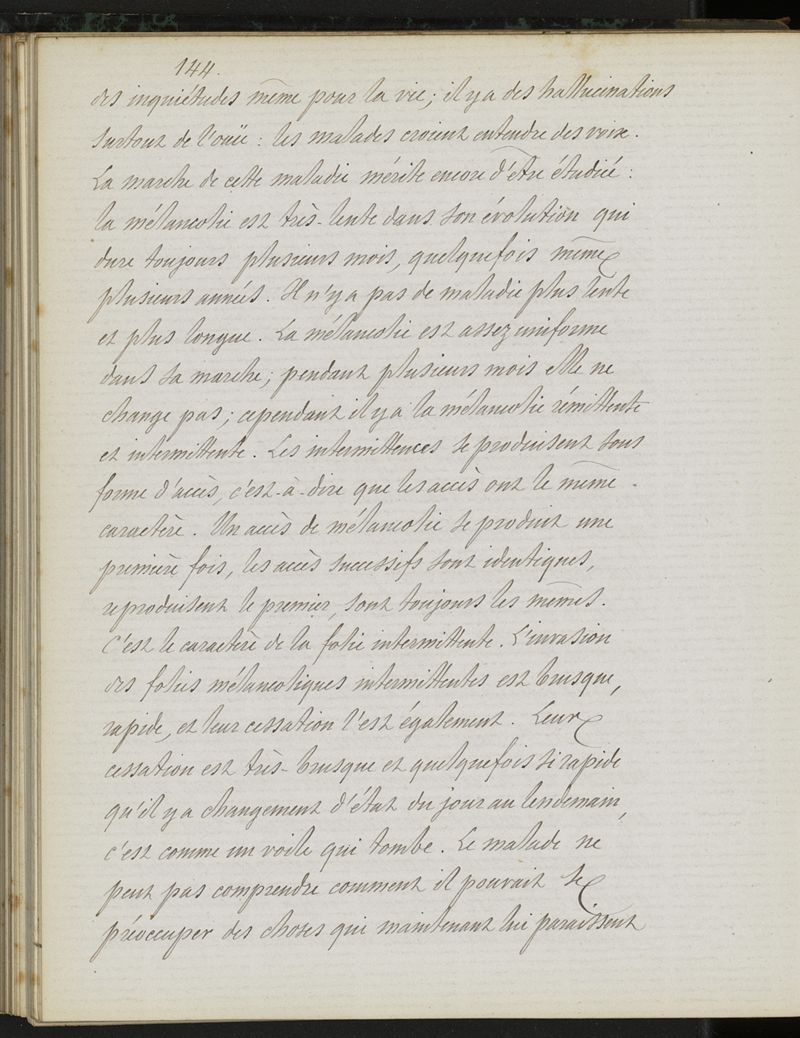 144.
des inquiétudes même pour la vie ; il y a des hallucinations
surtout de l'ouïe : les malades croient entendre des voix.
La marche de cette maladie mérite encore d'être étudiée :
la mélancolie est très-lente dans son évolution qui
dure toujours plusieurs mois, quelquefois même
plusieurs années. Il n'y a pas de maladie plus lente
et plus longue. La mélancolie est assez uniforme
dans sa marche ; pendant plusieurs mois elle ne
change pas ; cependant il y a la mélancolie rémittente
et intermittente. Les intermittences se produisent sous
forme d'accès, c'est-à-dire que les accès ont le même
caractère. Un accès de mélancolie se produit une
première fois, les accès successifs sont identiques,
reproduisent le premier, sont toujours les mêmes.
C'est le caractère de la folie intermittente. L'invasion
des folies mélancoliques intermittentes est brusque,
rapide, et leur cessation l'est également. Leur
cessation est très-brusque et quelquefois si rapide
qu'il y a changement d'état du jour au lendemain,
c'est comme un voile qui tombe. Le malade ne
peut pas comprendre comment il pouvait se
préoccuper des choses qui maintenant lui paraissent